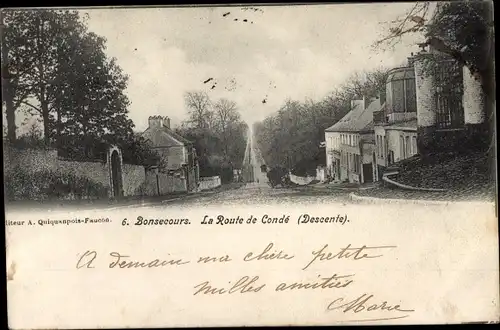 diteur A. Quiquanpois-Faucon.
6. Bonsecours. La Route de Condé (Descente).
A demain ma chère petite
milles amitiés
Marie